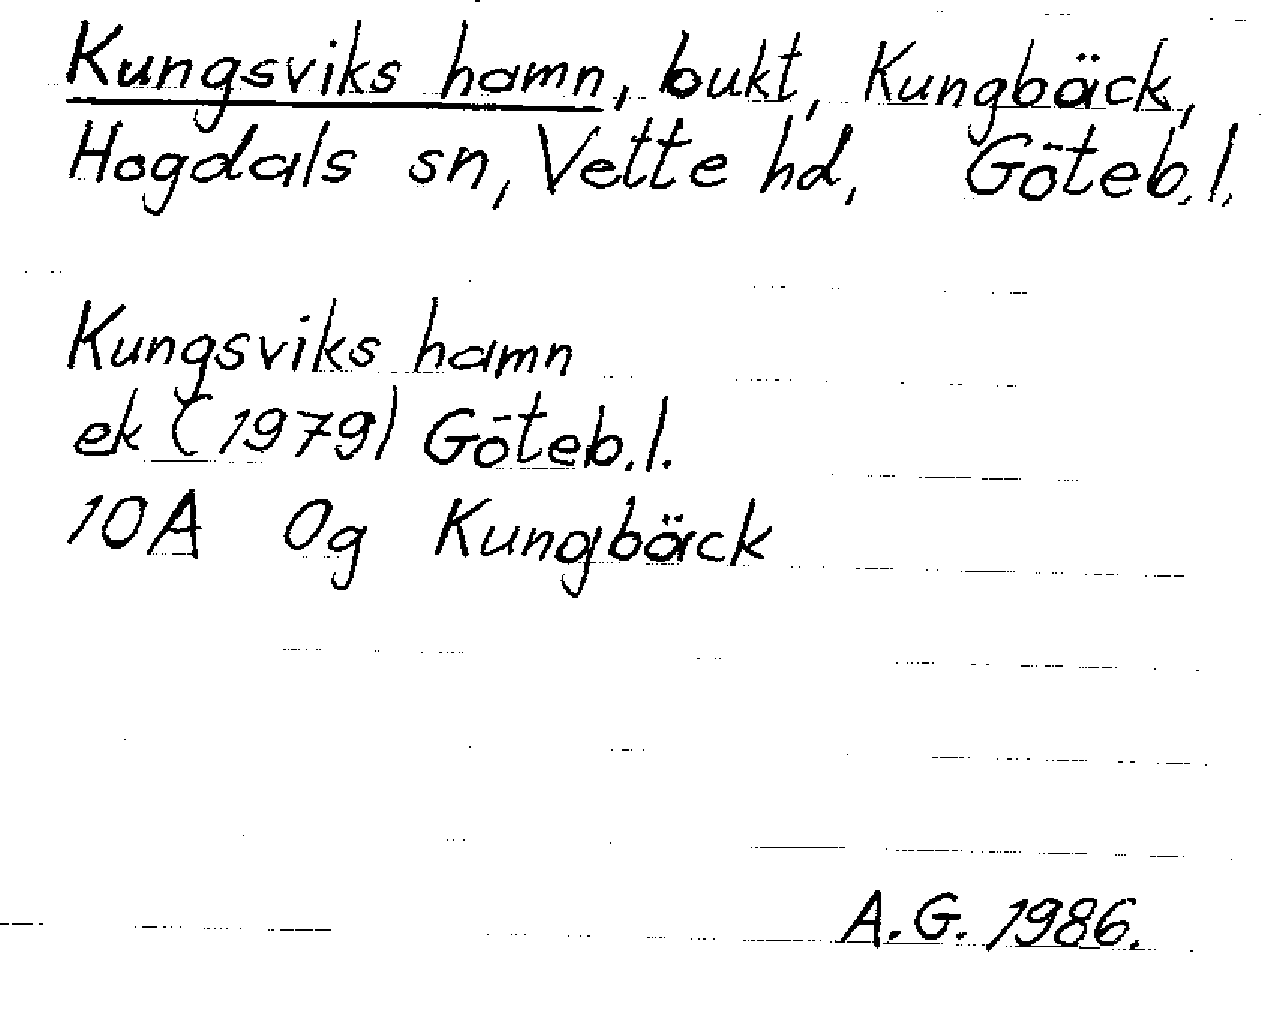 Kungsviks hamn, bukt, Kungbäck,
Hogdals sn, Vette hd, Göteb.l.
Kungsviks hamn
ek (1979) Göteb.l.
10A 0g Kungbäck
A.G. 1986.